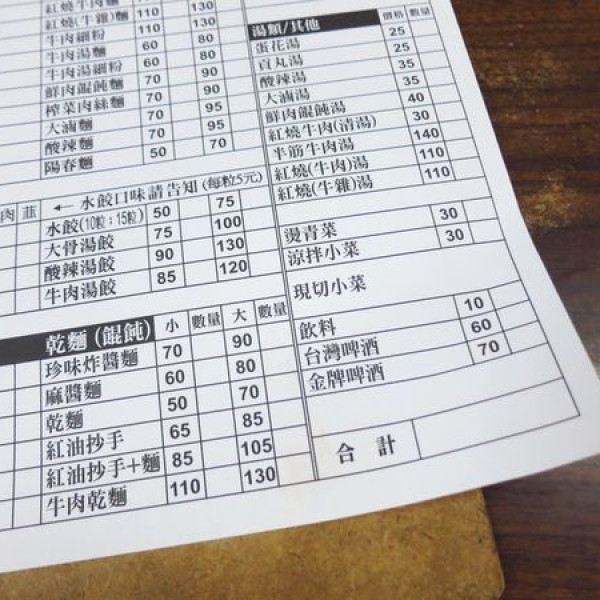 紅燒牛肉麵
紅燒(牛雜)麵 110 130
牛肉細粉 110 130
牛肉湯麵 60 80
牛肉湯細粉 60 80
鮮肉餛飩麵 70 90
榨菜肉絲麵 70 90
大滷麵 70 95
酸辣麵 70 95
陽春麵 50 70
肉 韮 ← 水餃口味請告知 (每粒5元)
水餃(10粒;15粒) 50 75
大骨湯餃 75 100
酸辣湯餃 90 130
牛肉湯餃 85 120
乾麵 (餛飩) 小 數量 大 數量
珍味炸醬麵 70 90
麻醬麵 60 80
乾麵 50 70
紅油抄手 65 85
紅油抄手+麵 85 105
牛肉乾麵 110 130
湯類/其他 價格 數量
蛋花湯 25
貢丸湯 25
酸辣湯 35
大滷湯 35
鮮肉餛飩湯 40
紅燒牛肉(清湯) 30
半筋牛肉湯 140
紅燒(牛肉)湯 110
紅燒(牛雜)湯 110
燙青菜 30
涼拌小菜 30
現切小菜
飲料 10
台灣啤酒 60
金牌啤酒 70
合 計